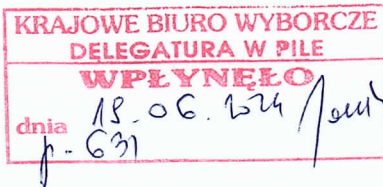 KRAJOWE BIURO WYBORCZE
DELEGATURA W PILE
WPŁYNĘŁO
dnia 19.06.2024
p-631